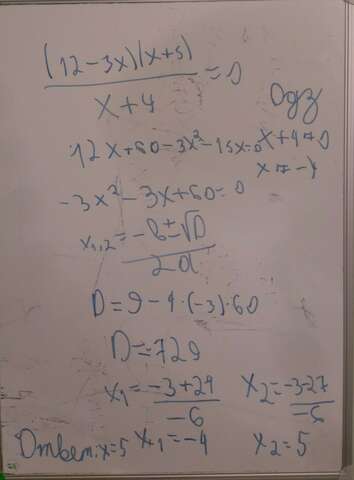 (12-3x)(x+5)/x+4 = 0
ОДЗ
12x+60-3x²-15x=0
x+4≠0
x≠-4
-3x²-3x+60=0
x₁,₂=-b±√D/2a
D=9-4·(-3)·60
D=729
x₁=-3+27/-6
x₂=-3-27/-6
x₁=-4
x₂=5
Ответ: x=5